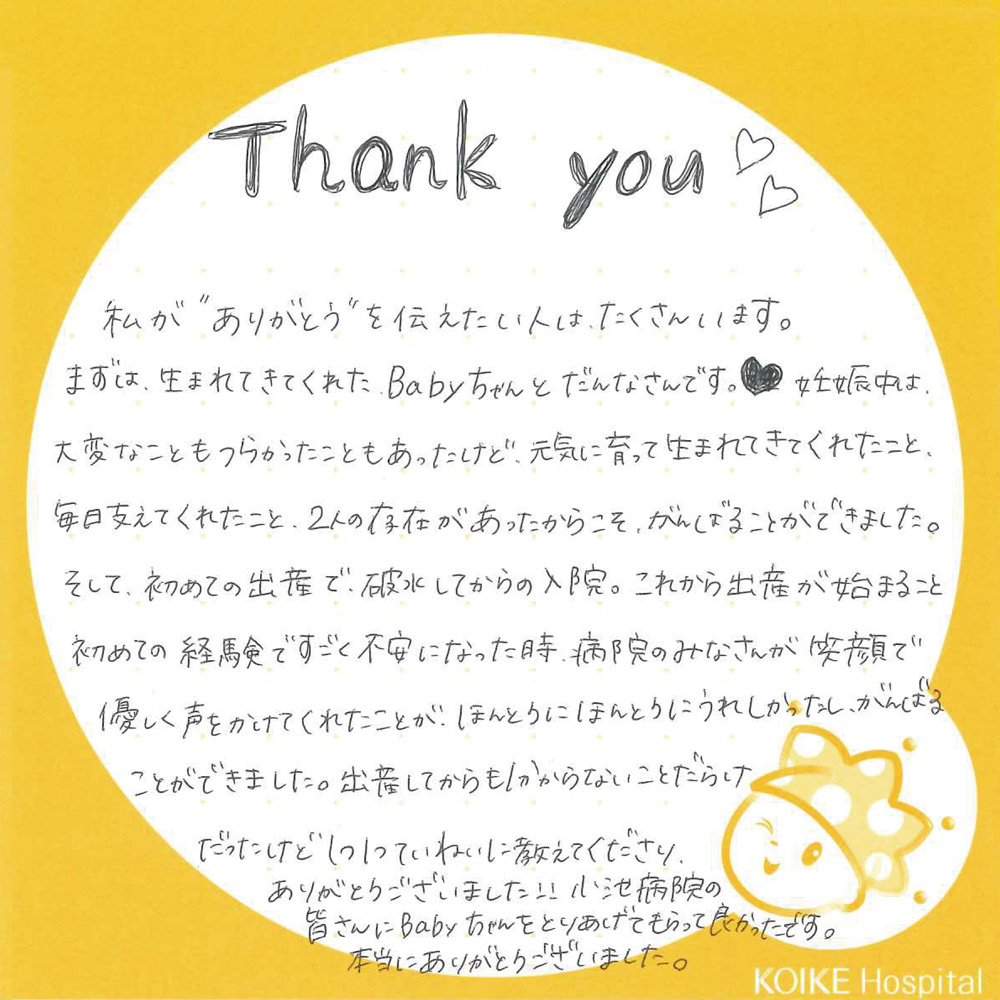 Thank you♡♡
私が"ありがとう"を伝えたい人は、たくさんいます。
まずは、生まれてきてくれた、Babyちゃんと だんなさんです。♥ 妊娠中は、
大変なこともつらかったこともあったけど、元気に育って生まれてきてくれたこと、
毎日支えてくれたこと、2人の存在があったからこそ、がんばることができました。
そして、初めての出産で、破水してからの入院。これから出産が始まること
初めての経験ですごく不安になった時、病院のみなさんが笑顔で
優しく声をかけてくれたことが、ほんとうにほんとうにうれしかったし、がんばる
ことができました。出産してからも分からないことだらけ
だったけど1つ1つていねいに教えてくださり、
ありがとうございました!! 小池病院の
皆さんにBabyちゃんをとりあげてもらって良かったです。
本当にありがとうございました。
KOIKE Hospital